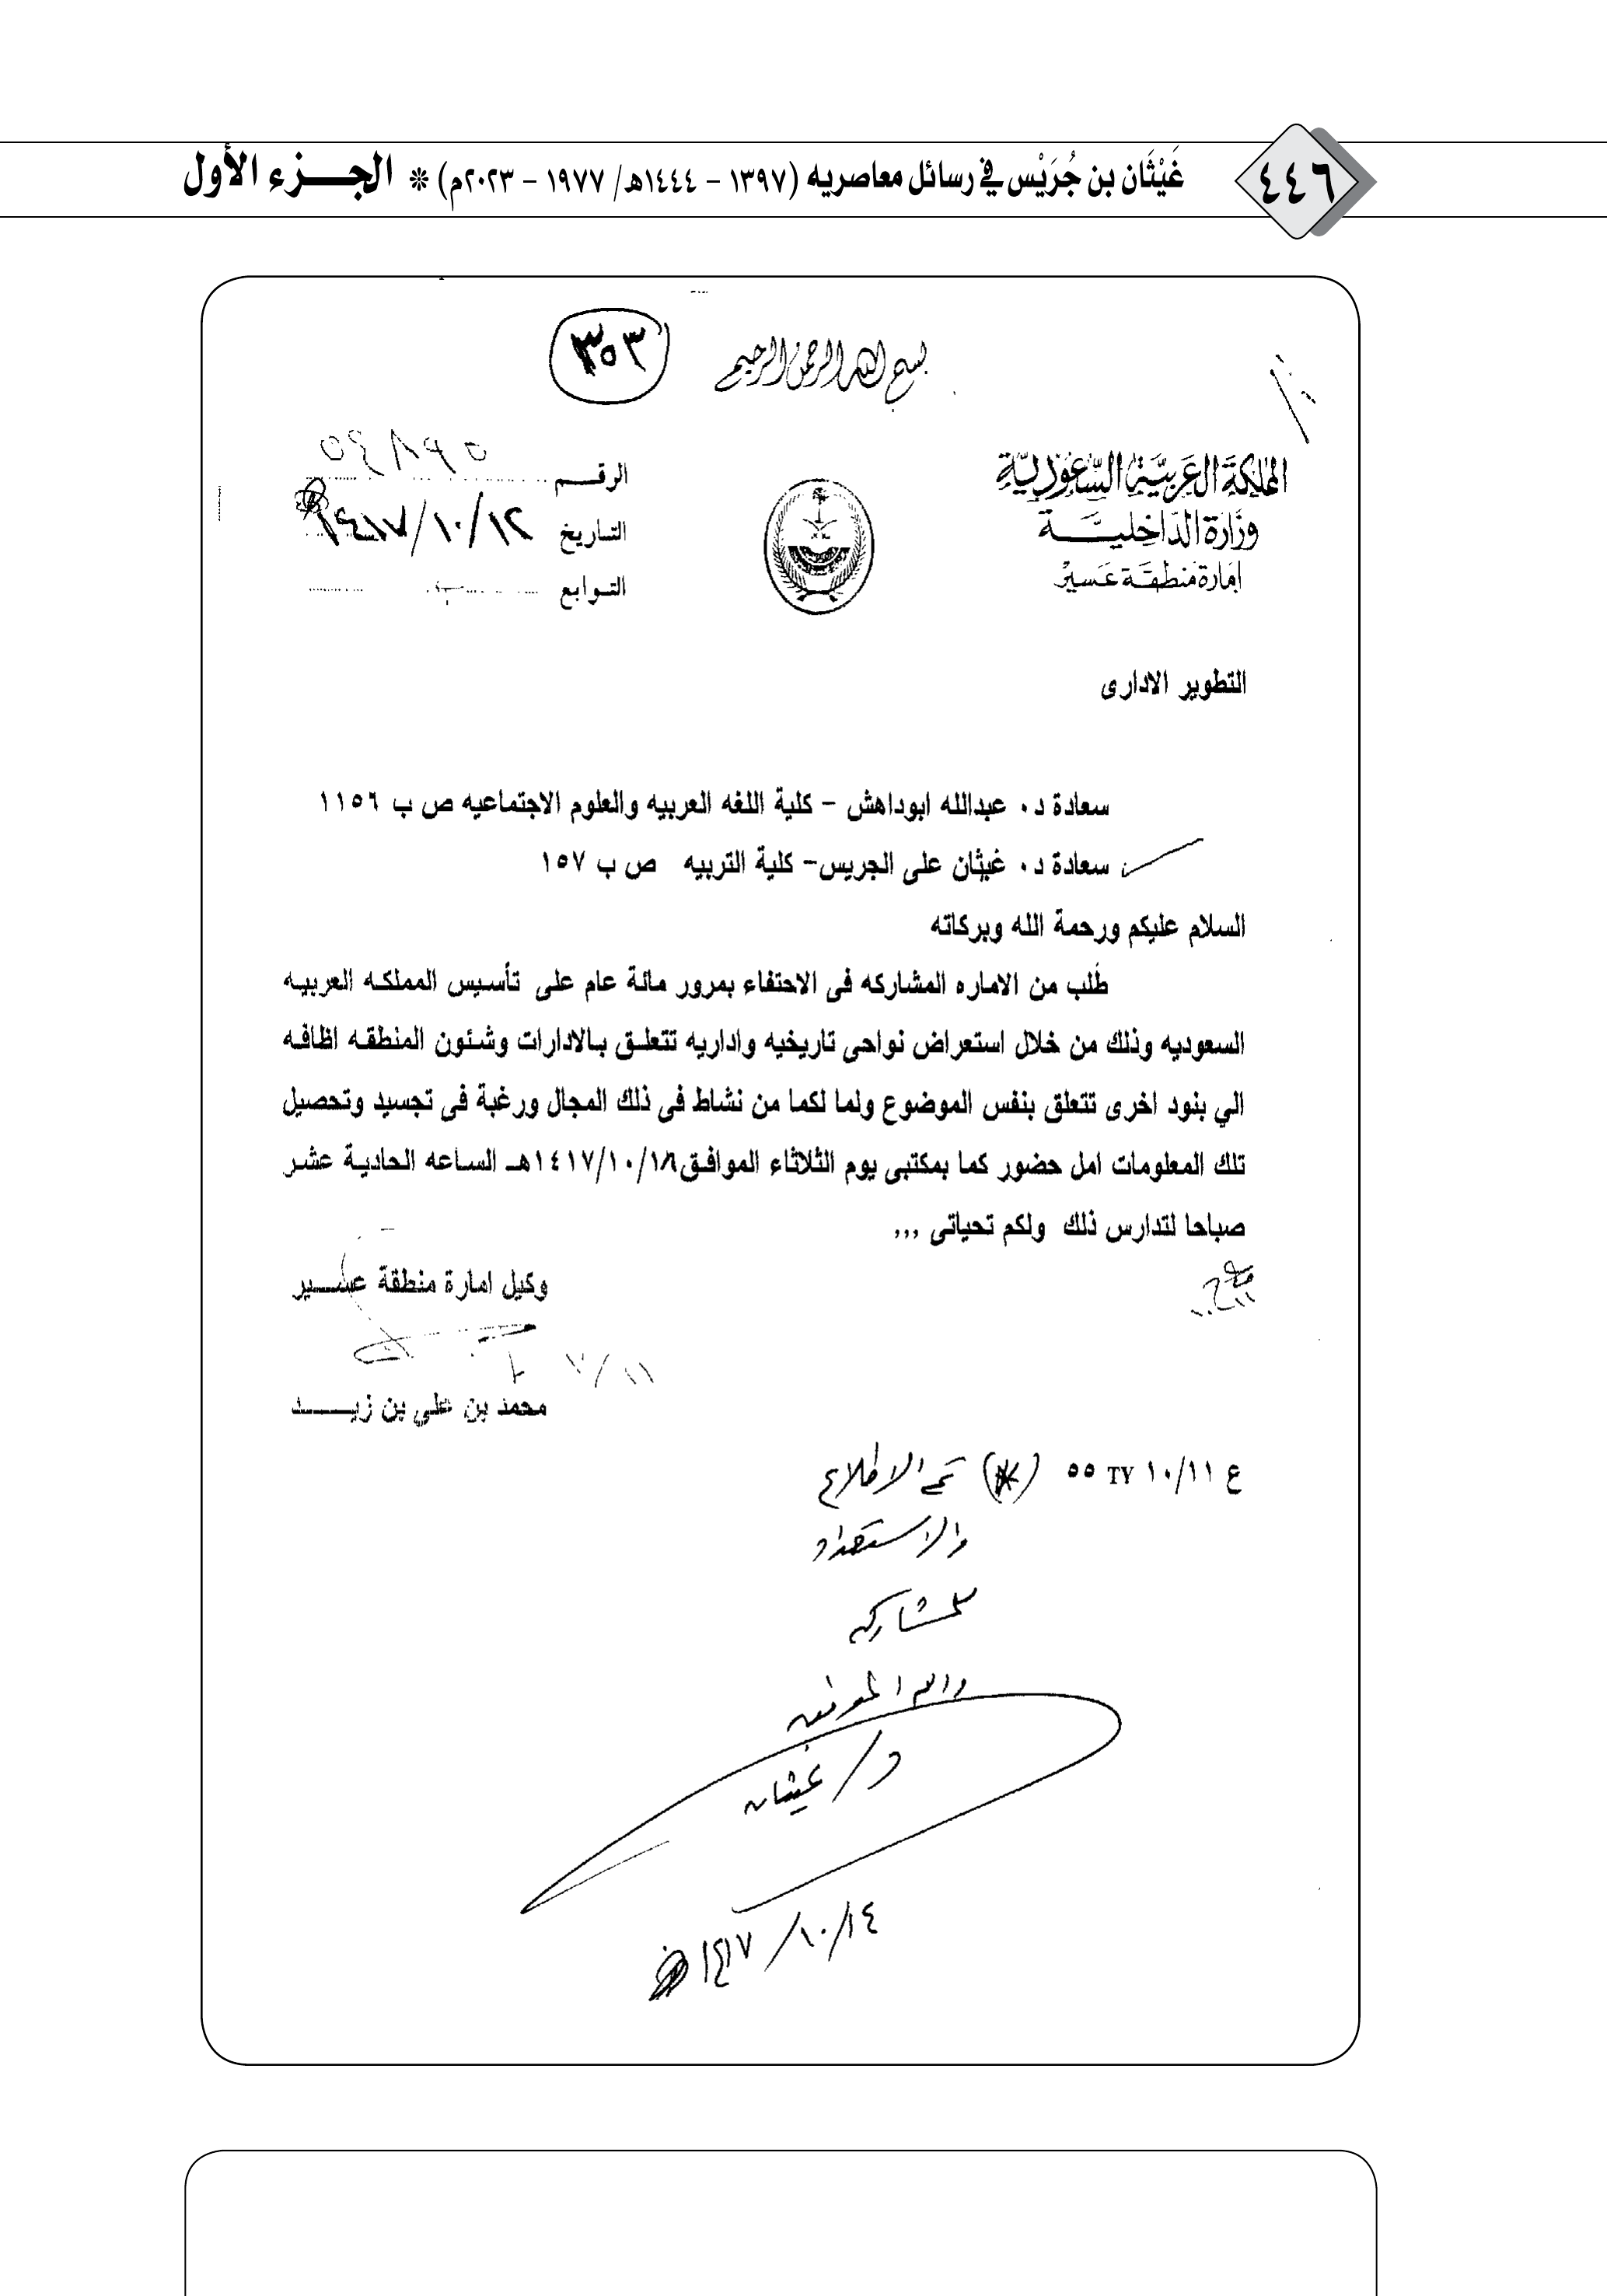 ٤٤٦
غَيْثَان بن جُرَيْس في رسائل معاصريه (١٣٩٧ - ١٤٤٤هـ/ ١٩٧٧ - ٢٠٢٣م) * الجـــزء الأول
٣٥٣
بسم الله الرحمن الرحيم
المملكة العربية السعودية
وزارة الداخليــــة
إمارة منطقة عسير
الرقـــم
التـاريخ ١٤١٧/١٠/١٢
التـوابع
التطوير الادارى
سعادة د٠ عبدالله ابوداهش - كلية اللغه العربيه والعلوم الاجتماعيه ص ب ١١٥٦
سعادة د٠ غيثان على الجريس- كلية التربيه ص ب ١٥٧
السلام عليكم ورحمة الله وبركاته
طُلب من الاماره المشاركه فى الاحتفاء بمرور مائة عام على تأسيس المملكه العربيه
السعوديه وذلك من خلال استعراض نواحى تاريخيه واداريه تتعلـق بـالادارات وشـئون المنطقـه اظافـه
الي بنود اخرى تتعلق بنفس الموضوع ولما لكما من نشاط فى ذلك المجال ورغبة فى تجسيد وتحصيل
تلك المعلومات امل حضور كما بمكتبى يوم الثلاثاء الموافـق ١٤١٧/١٠/١٨هـ السـاعه الحاديـة عشـر
صباحا لتدارس ذلك ولكم تحياتى ,,,
وكيل امارة منطقة عســـير
محمد بن علي بن زيـــــد
ع ١٠/١١ TY ٥٥
(*) تم الاطلاع
والاستعداد
للمشاركه
والله الموفق
د/ غيثان
١٤١٧/١٠/١٤هـ